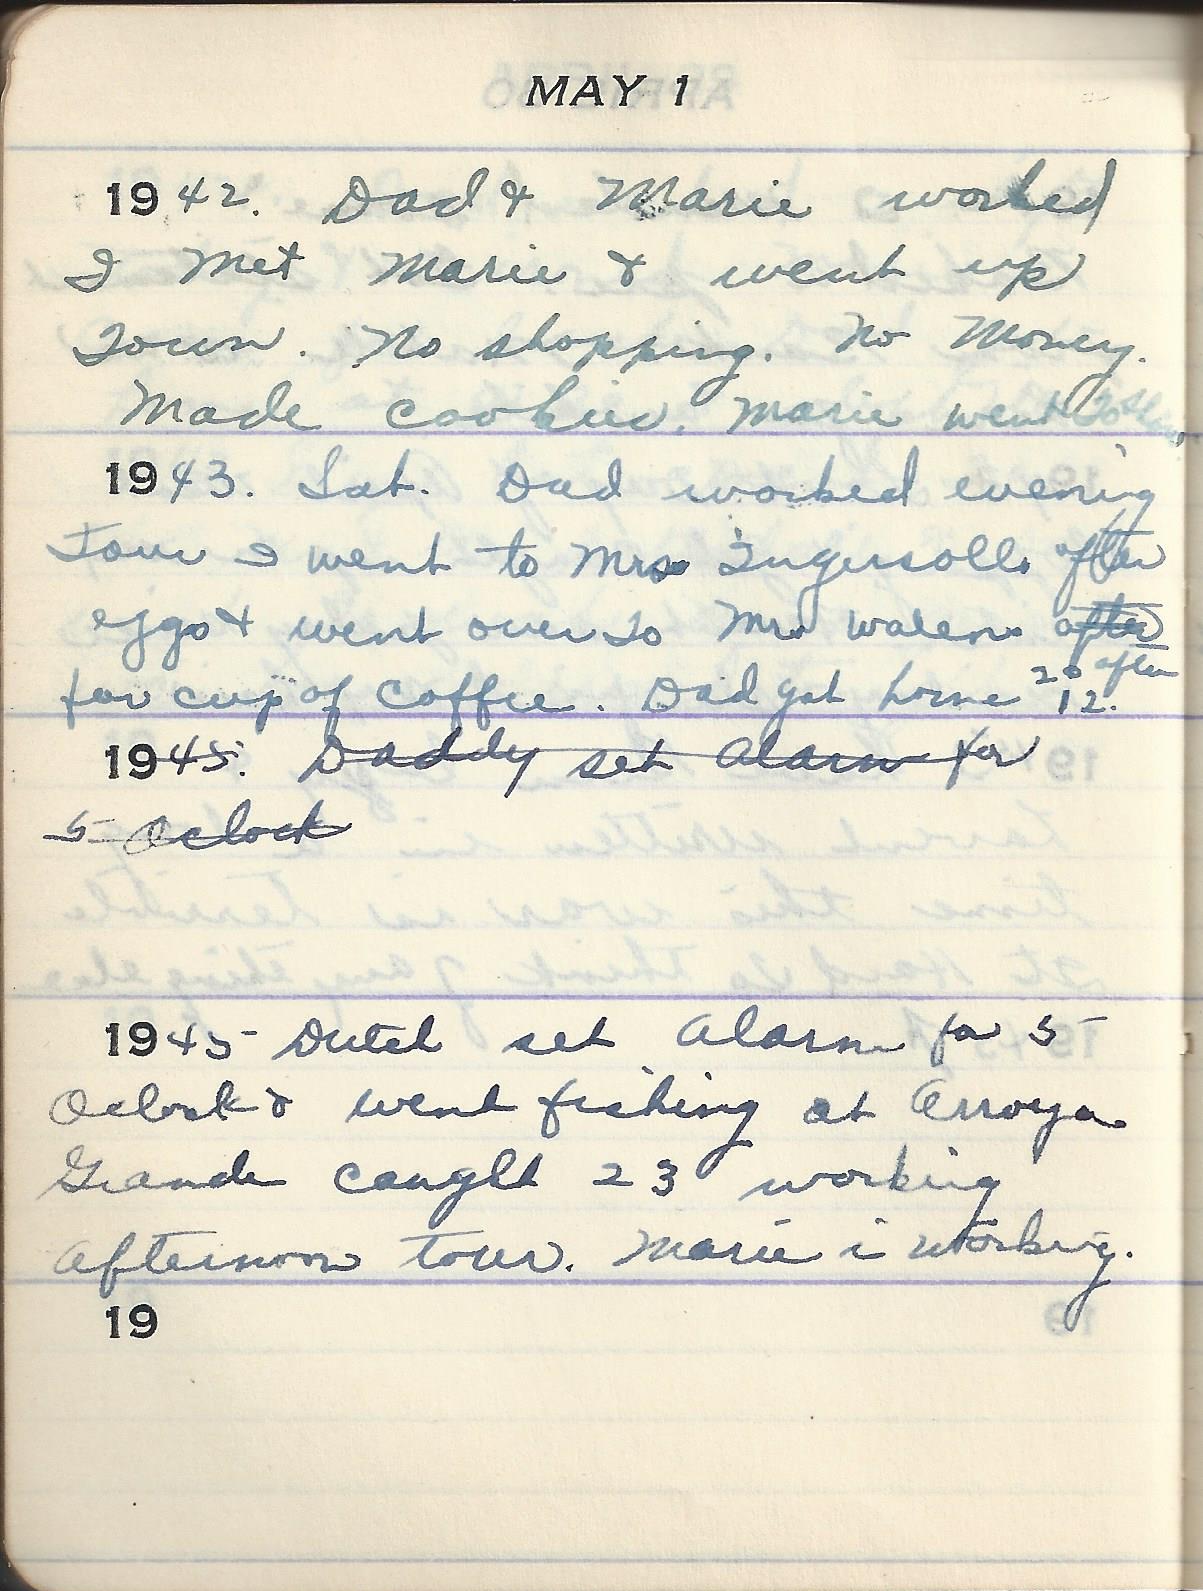 MAY 1
1942. Dad & Marie worked
I Met Marie & went up
Town. No shopping. No Money.
Made cookies. Marie went to
1943. Sat. Dad worked evening
Tour I went to Mrs Ingersolls after
eggs & went over to Mrs Walens after
for cup of coffee. Dad got home 20 after 12.
1945. Daddy set Alarm for
5 Oclock
1945 Dutch set Alarm for 5
Oclock & went fishing at Arroya
Grande caught 23 working
Afternoon tour. Marie is working.
19